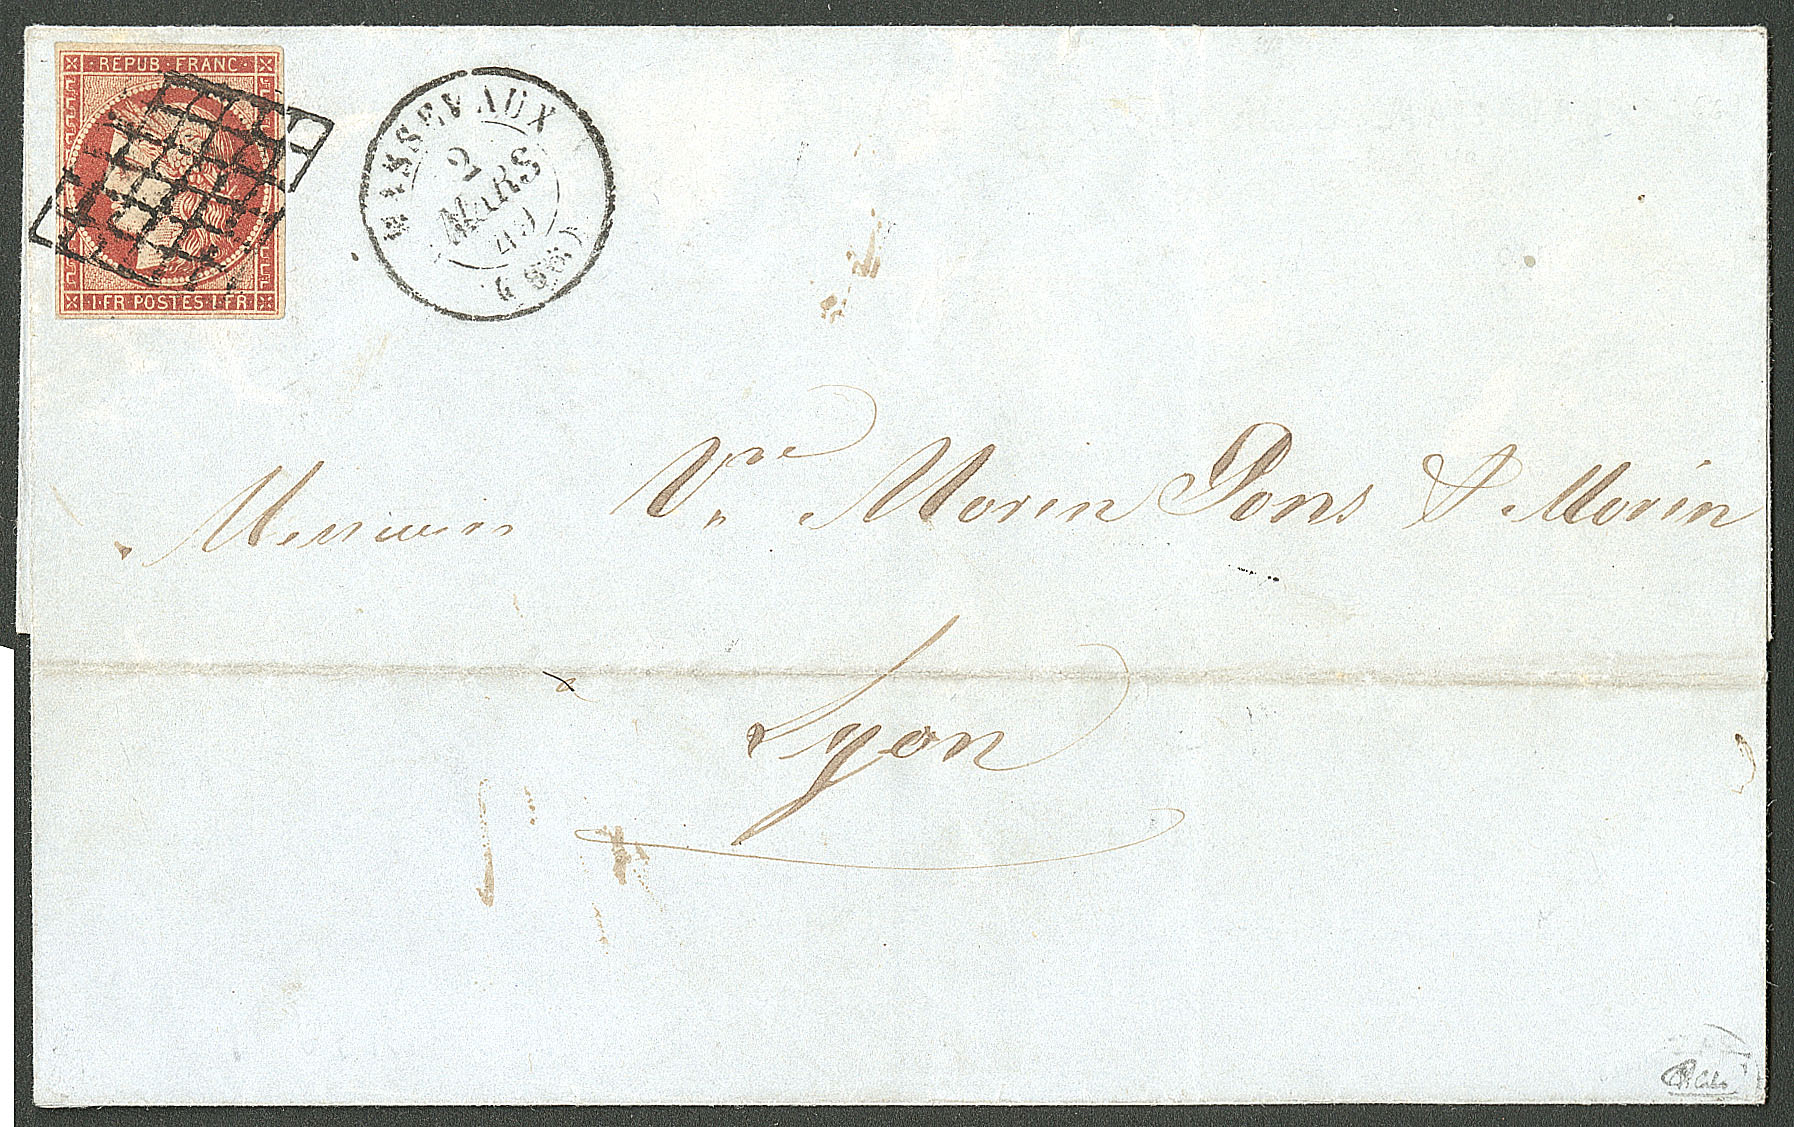 REPUB·FRANC·
·1·FR·POSTES·1·FR·
MASSEVAUX
2
MARS
49
(66)
Messieurs Vve Morin Pons & Morin
Lyon